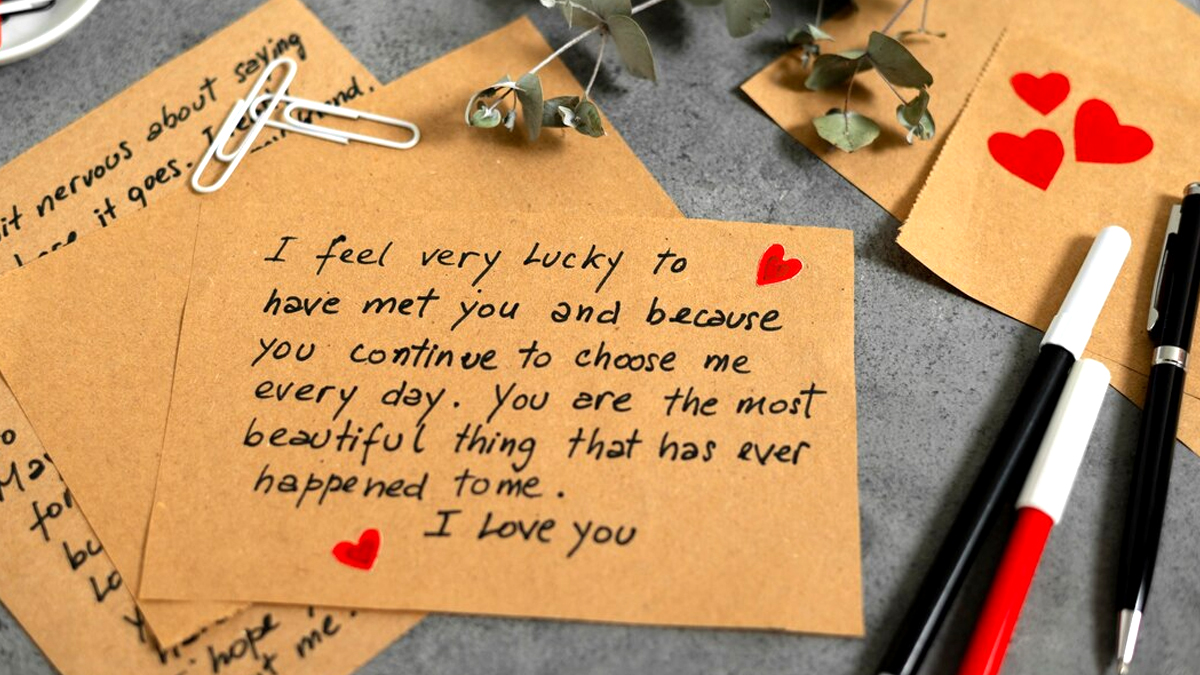 it nervous about saying
it goes. I
I feel very Lucky to
have met you and because
you continue to choose me
every day. You are the most
beautiful thing that has ever
happened to me.
I Love you
for
hope
me.